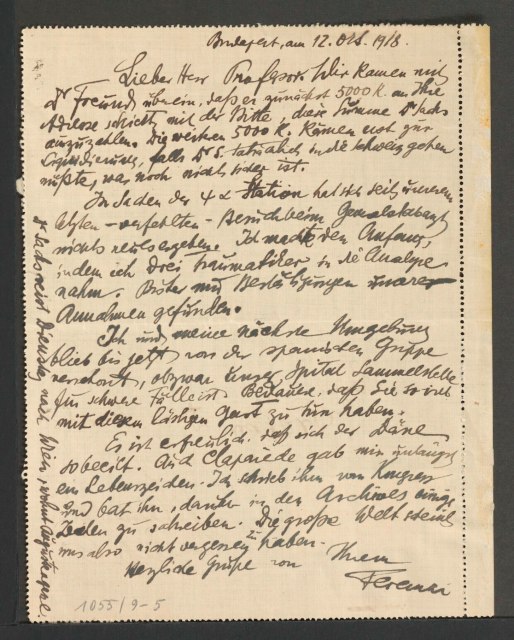 Budapest, am 12. Okt. 1918.
Lieber Herr Professor! Wir kamen mit
Dr Freund überein, daß er zunächst 5000 K. an Ihre
Adresse schickt, mit der Bitte, diese Summe Dr Sachs
auszuzahlen. Die weiteren 5000 K. kämen erst zur
Liquidierung, falls Dr S. tatsächlich in die Schweiz gehen
müßte, was noch nicht sicher ist.
In Sachen der Station hat sich seit unserem
letzten – verfehlten – Besuch beim Generalstabsarzt
nichts neues ergeben. Ich machte den Anfang,
indem ich drei Traumatiker in die Analyse
nahm. Bisher nur Bestätigungen unserer
Annahmen gefunden.
Ich und meine nächste Umgebung
blieb bis jetzt von der spanischen Grippe
verschont, obzwar unser Spital Sammelstelle
für schwere Fälle ist. Bedauere, daß Sie so viel
mit diesem lästigen Gast zu tun haben.
Es ist erfreulich, daß sich der Däne
so beeilt. Auch Claparède gab mir unlängst
ein Lebenszeichen. Ich schrieb ihm vom Kongress
und bat ihn, darüber in den Archives einige
Zeilen zu schreiben. Die große Welt scheint
uns also nicht vergessen zu haben.
Herzliche Grüße von Ihrem
Ferenczi
Dr Sachs reist Dienstag nach Wien, wohnt
1055/9-5